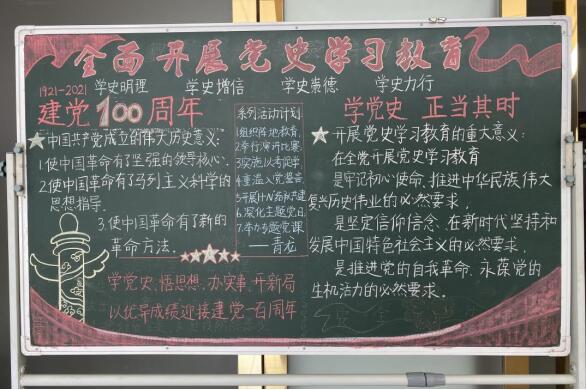 全面开展党史学习教育
1921-2021 学史明理 学史增信 学史崇德 学史力行
建党100周年
中国共产党成立的伟大历史意义:
1.使中国革命有了坚强的领导核心.
2.使中国革命有了马列主义科学的
思想指导.
3.使中国革命有了新的
革命方法.
学党史、悟思想、办实事、开新局
以优异成绩迎接建党一百周年
系列活动计划
1.组织阵地教育.
2.举行演讲比赛.
3.实施以考促学.
4.重温入党誓言.
6.深化主题党日.
7.举办专题党课
——青龙
学党史 正当其时
开展党史学习教育的重大意义:
在全党开展党史学习教育
是牢记初心使命、推进中华民族伟大
复兴历史伟业的必然要求.
是坚定信仰信念、在新时代坚持和
发展中国特色社会主义的必然要求.
是推进党的自我革命、永葆党的
生机活力的必然要求.